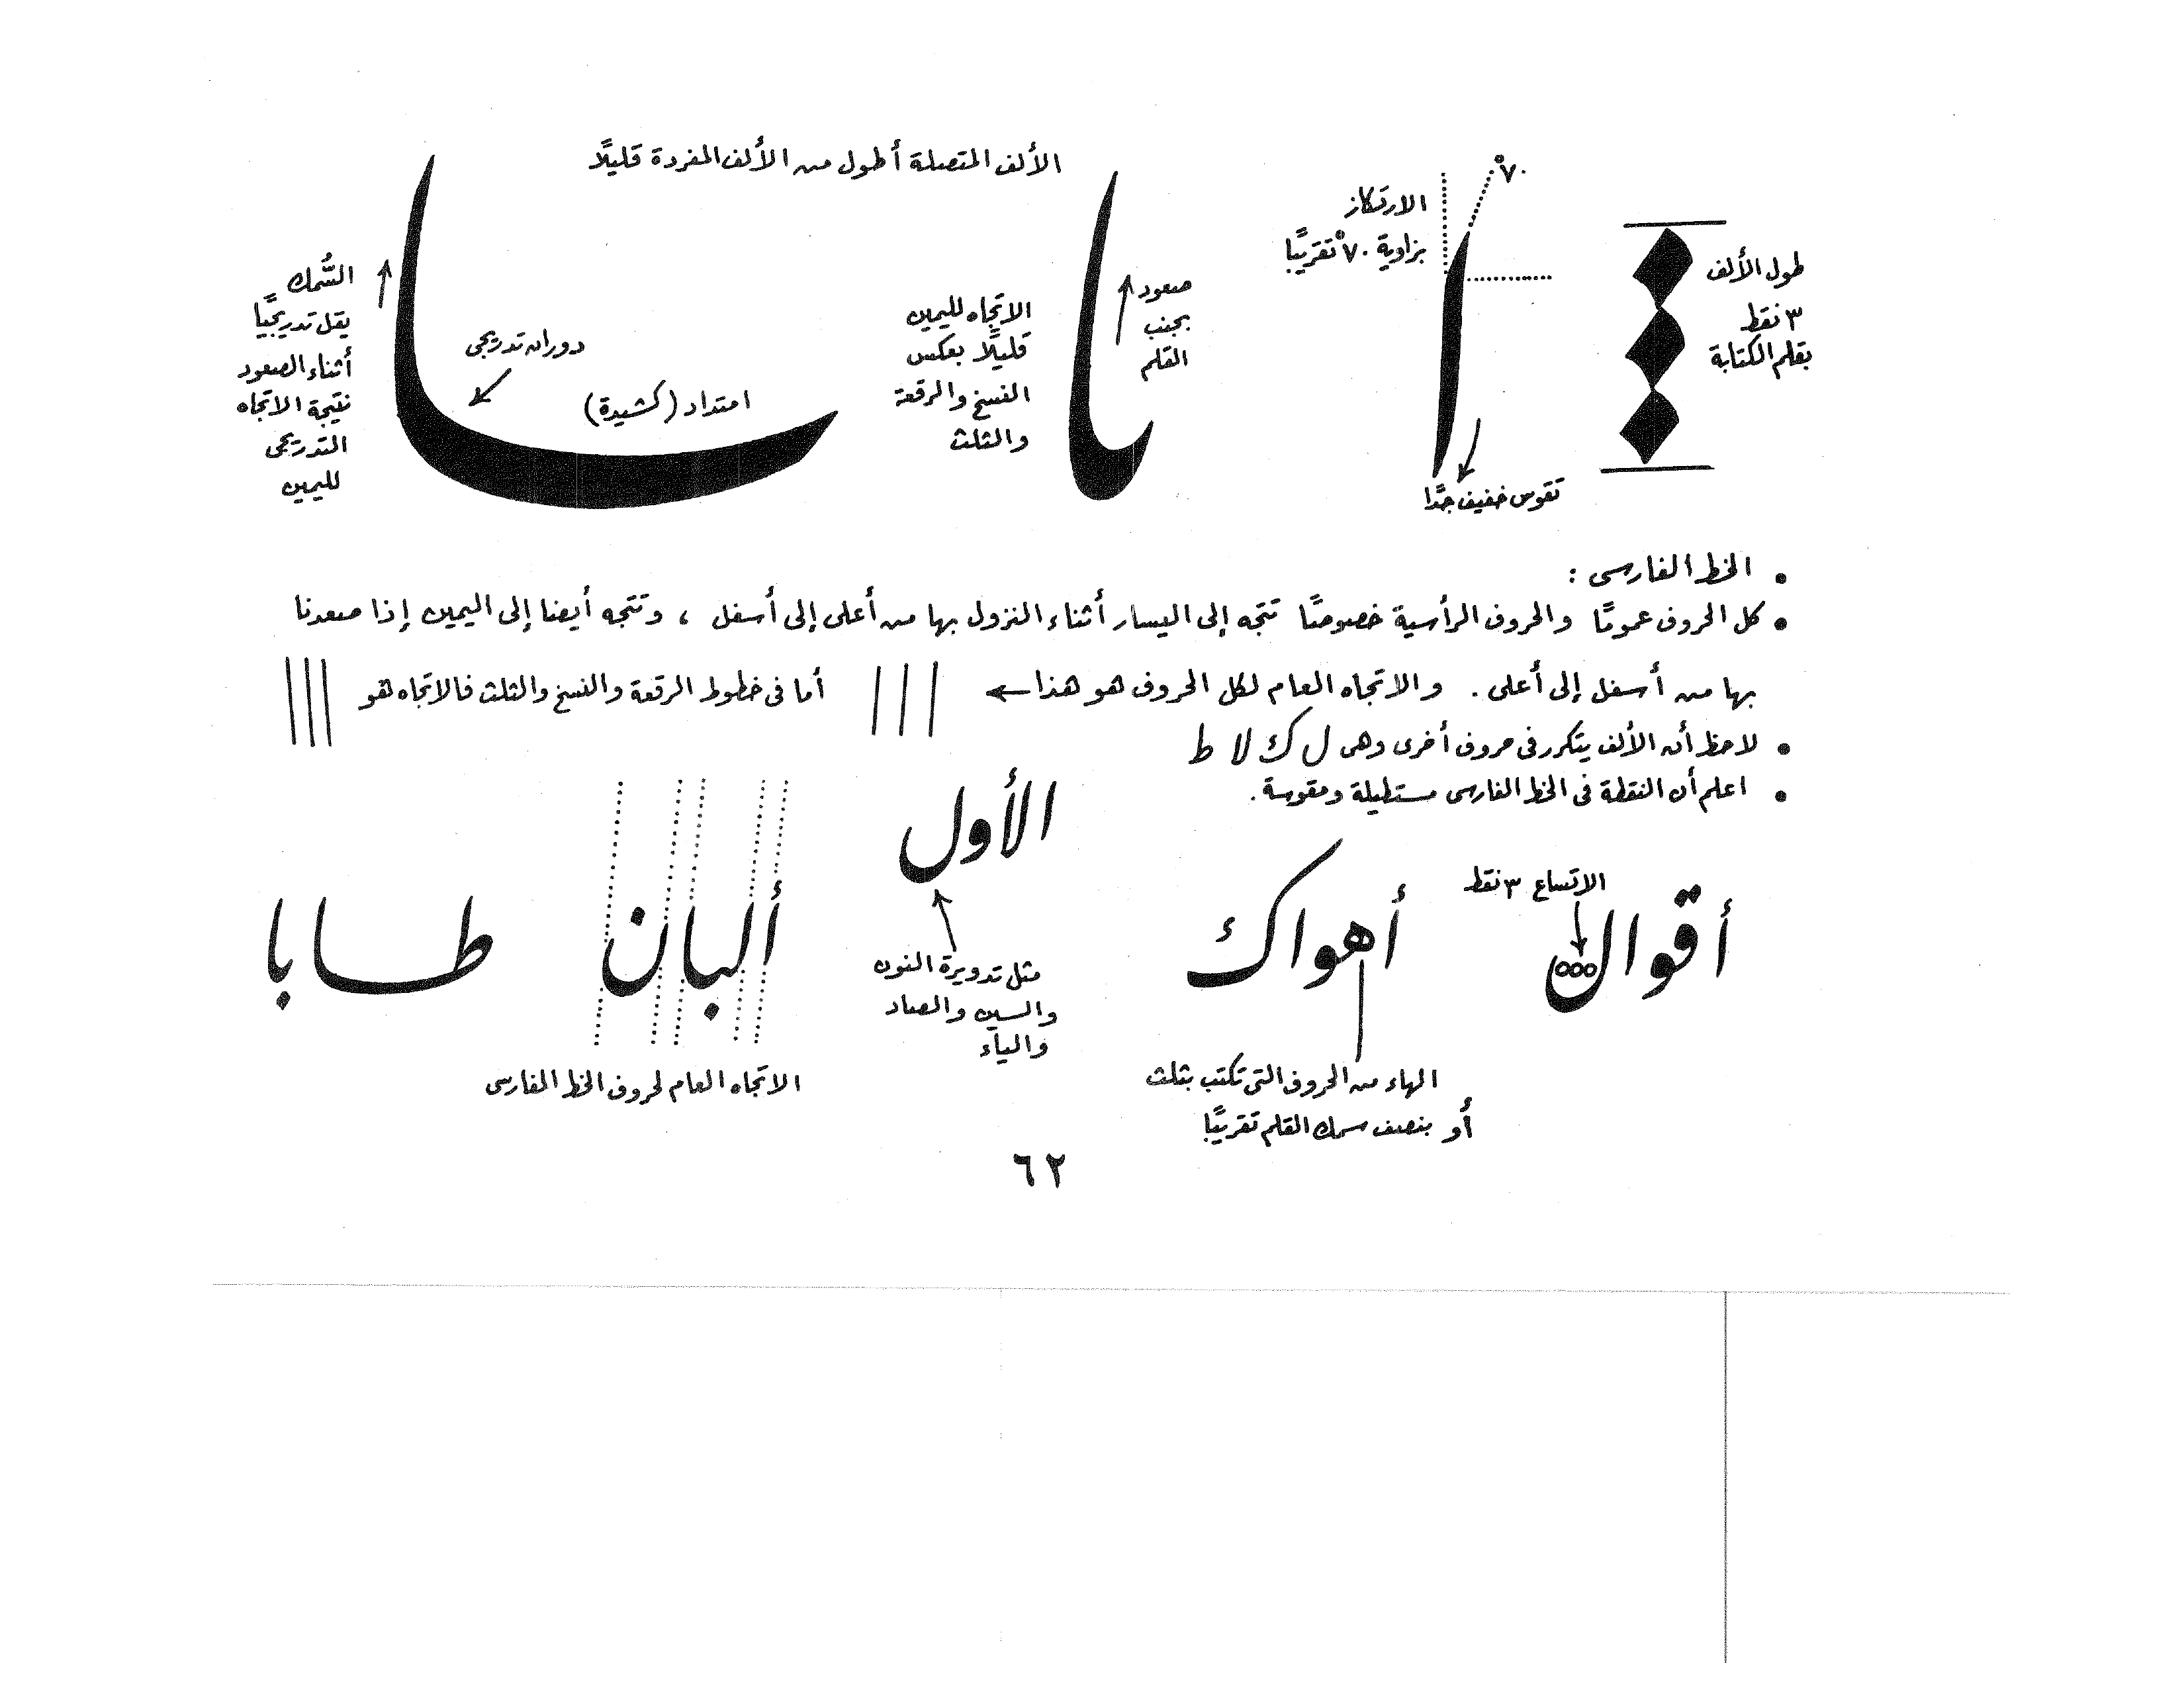 الألف المتصلة أطول من الألف المفردة قليلًا
°٧٠
الارتكاز
بزاوية ٧٠° تقريبًا
طول الألف
٣ نقط
بقلم الكتابة
تقوس خفيف جدًا
صعود
بجنب
القلم
الاتجاه لليمين
قليلًا بعكس
النسخ والرقعة
والثلث
امتداد (كشيدة)
دوران تدريجى
السُّمك
يقل تدريجيًا
أثناء الصعود
نتيجة الاتجاه
التدريجى
لليمين
• الخط الفارسى :
• كل الحروف عمومًا والحروف الرأسية خصوصًا تتجه إلى اليسار أثناء النزول بها من أعلى إلى أسفل ، وتتجه أيضا إلى اليمين إذا صعدنا
بها من أسفل إلى أعلى . والاتجاه العام لكل الحروف هو هذا ← أما فى خطوط الرقعة والنسخ والثلث فالاتجاه هو
• لاحظ أن الألف يتكرر فى حروف أخرى وهى ل ك لا ط
• اعلم أن النقطة فى الخط الفارسى مستطيلة ومقوسة .
الاتساع ٣ نقط
أقوال
أهواك
الأول
ألبان
طابا
مثل تدويرة النون
والسين والصاد
والياء
الهاء من الحروف التى تكتب بثلث
أو بنصف سمك القلم تقريبًا
الاتجاه العام لحروف الخط الفارسى
٦٢